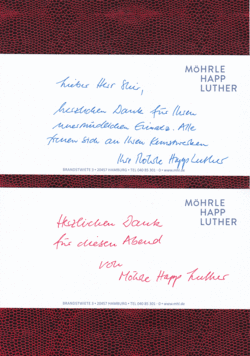 MÖHRLE
HAPP
LUTHER
Lieber Herr Shi,
herzlichen Dank für Ihren
unermüdlichen Einsatz. Alle
freuen sich an Ihren Kunstwerken
Ihr Möhrle Happ Luther
BRANDSTWIETE 3 • 20457 HAMBURG • TEL 040 85 301 - 0 • www.mhl.de
MÖHRLE
HAPP
LUTHER
Herzlichen Dank
für diesen Abend
von
Möhrle Happ Luther
BRANDSTWIETE 3 • 20457 HAMBURG • TEL 040 85 301 - 0 • www.mhl.de